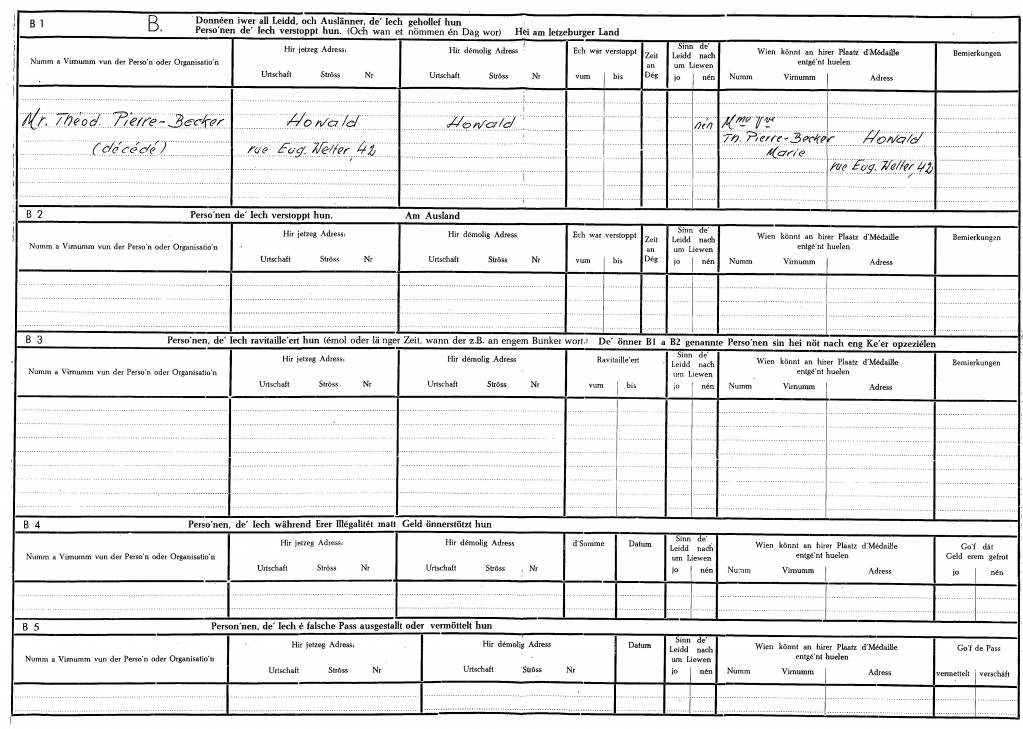 B 1 B. Donnéen iwer all Leidd, och Auslänner, de' Iech gehollef hun
Perso'nen de' Iech verstoppt hun. (Och wan et nömmen én Dag wor) Hei am letzeburger Land
Numm a Virnumm vun der Perso'n oder Organisatio'n
Hir jetzeg Adress:
Urtschaft Ströss Nr
Hir démolig Adress
Urtschaft Ströss Nr
Ech war verstoppt
vum bis
Zeit
an
Dég
Sinn de'
Leidd nach
um Liewen
jo nén
Wien könnt an hirer Plaatz d'Médaille
entgé'nt huelen
Numm Virnumm Adress
Bemierkungen
Mr. Théod. Pierre-Becker Howald Howald nén Mme Vve
(décédé) rue Eug. Welter, 42 Th. Pierre-Becker Howald
Marie
rue Eug. Welter, 42
B 2 Perso'nen de' Iech verstoppt hun. Am Ausland
Numm a Virnumm vun der Perso'n oder Organisatio'n
Hir jetzeg Adress:
Urtschaft Ströss Nr
Hir démolig Adress
Urtschaft Ströss Nr
Ech war verstoppt
vum bis
Zeit
an
Dég
Sinn de'
Leidd nach
um Liewen
jo nén
Wien könnt an hirer Plaatz d'Médaille
entgé'nt huelen
Numm Virnumm Adress
Bemierkungen
B 3 Perso'nen, de' Iech ravitaille'ert hun (émol oder länger Zeit, wann der z.B. an engem Bunker wort.) De' önner B1 a B2 genannte Perso'nen sin hei nöt nach eng Ke'er opzeziélen
Numm a Virnumm vun der Perso'n oder Organisatio'n
Hir jetzeg Adress:
Urtschaft Ströss Nr
Hir démolig Adress
Urtschaft Ströss Nr
Ravitaille'ert
vum bis
Sinn de'
Leidd nach
um Liewen
jo nén
Wien könnt an hirer Plaatz d'Médaille
entgé'nt huelen
Numm Virnumm Adress
Bemierkungen
B 4 Perso'nen, de' Iech während Erer Illégalitét matt Geld önnerstötzt hun
Numm a Virnumm vun der Perso'n oder Organisatio'n
Hir jetzeg Adress:
Urtschaft Ströss Nr
Hir démolig Adress
Urtschaft Ströss Nr
d'Somme
Datum
Sinn de'
Leidd nach
um Liewen
jo nén
Wien könnt an hirer Plaatz d'Médaille
entgé'nt huelen
Numm Virnumm Adress
Go'f dât
Geld erem gefrot
jo nén
B 5 Person'nen, de' Iech é falsche Pass ausgestallt oder vermöttelt hun
Numm a Virnumm vun der Perso'n oder Organisatio'n
Hir jetzeg Adress:
Urtschaft Ströss Nr
Hir démolig Adress
Urtschaft Ströss Nr
Datum
Sinn de'
Leidd nach
um Liewen
jo nén
Wien könnt an hirer Plaatz d'Médaille
entgé'nt huelen
Numm Virnumm Adress
Go'f de Pass
vermettelt verschâft